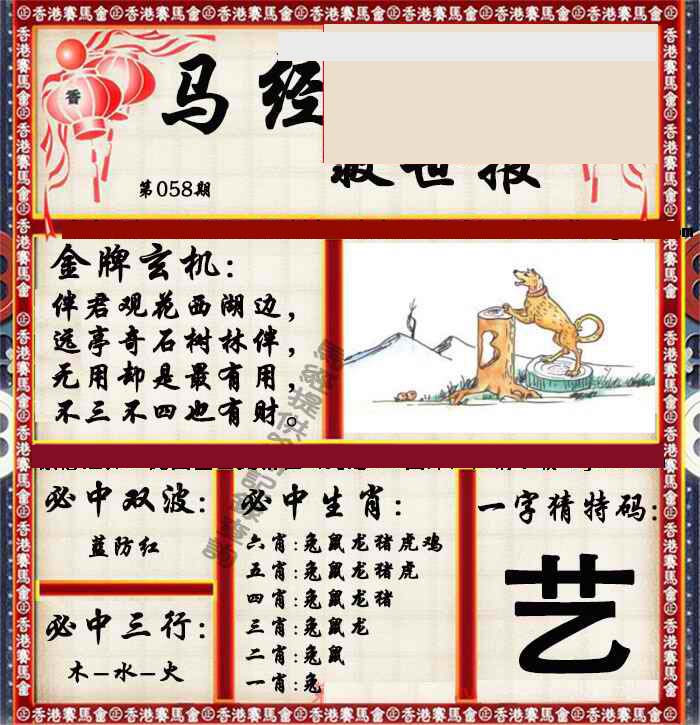 马经
救世报
香
第058期
金牌玄机:
伴君观花西湖边，
远亭奇石树林伴，
无用却是最有用，
不三不四也有财。
必中双波:
蓝防红
必中三行:
木－水－火
必中生肖:
六肖:兔鼠龙猪虎鸡
五肖:兔鼠龙猪虎
四肖:兔鼠龙猪
三肖:兔鼠龙
二肖:兔鼠
一肖:兔
一字猜特码:
艺
香港賽馬會